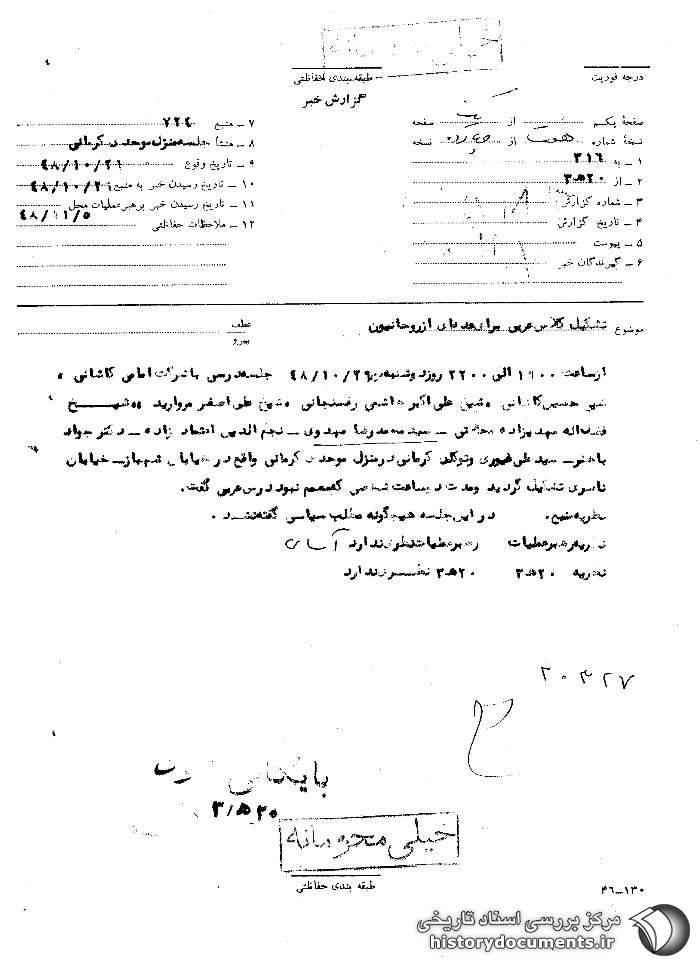 خیلی محرمانه
درجه فوریت
طبقه بندی حفاظتی
گزارش خبر
صفحهٔ یکم از یک صفحه
نسخهٔ شماره هفت از نسخه
۱ – به ۳۱۶
۲ – از ۲۰ه۳
۳ – شماره گزارش
۴ – تاریخ گزارش
۵ – پیوست
۶ – گیرندگان خبر
۷ – منبع ۷۲۴
۸ – منشأ جلسه منزل موحدی کرمانی
۹ – تاریخ وقوع ۴۸/۱۰/۲۶
۱۰ – تاریخ رسیدن خبر به منبع ۴۸/۱۰/۲۶
۱۱ – تاریخ رسیدن خبر برهبر عملیات محل ۴۸/۱۱/۵
۱۲ – ملاحظات حفاظتی
موضوع تشکیل کلاس عربی برای عده‌ای از روحانیون
عطف
پیرو
از ساعت ۱۹۰۰ الی ۲۲۰۰ روز دوشنبه ۴۸/۱۰/۲۶ جلسه درسی با شرکت امامی کاشانی ،
حسین کاشانی ، شیخ علی اکبر هاشمی رفسنجانی ، شیخ علی اصغر مروارید ، شیخ
فضل‌اله مهدیزاده محلاتی – سید محمدرضا مهدوی – نجم الدین اعتماد زاده – دکتر جواد
باهنر – سید علی غیوری و توکلی کرمانی در منزل موحدی کرمانی واقع در خیابان شهباز – خیابان
تشکیل گردید و مدت دو ساعت شخصی که معمم نبود درس عربی گفت .
نظریه منبع . در این جلسه هیچگونه مطلب سیاسی گفته نشد .
نظریه رهبر عملیات رهبر عملیات نظری ندارد
نظریه ۲۰ه۳ ۲۰ه۳ نظری ندارد
۲۰۳۲۷
بایگانی
۲۰ه/۳
خیلی محرمانه
طبقه بندی حفاظتی
۴۶–۱۳۰
مرکز بررسی اسناد تاریخی
historydocuments.ir